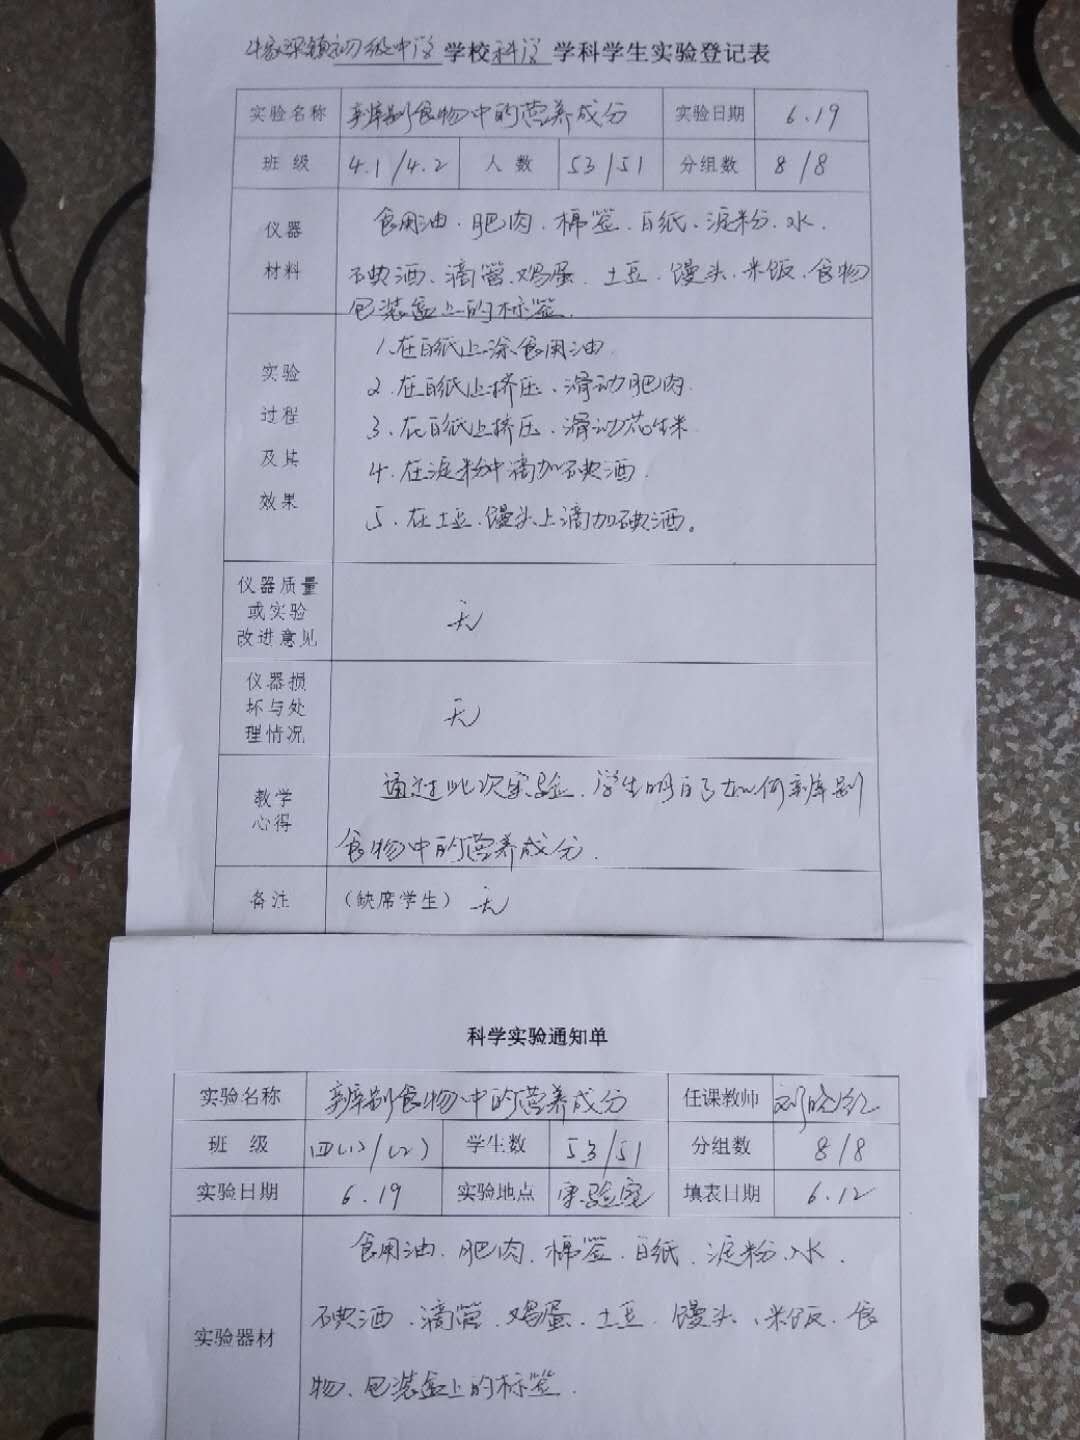 初级中学学校科学学科学生实验登记表
实验名称 辨别食物中的营养成分 实验日期 6.19
班 级 4.1/4.2 人 数 53/51 分组数 8/8
仪器 食用油、肥肉、棉签、白纸、淀粉、水、
材料 碘酒、滴管、鸡蛋、土豆、馒头、米饭、食物
包装盒上的标签.
1.在白纸上涂食用油
实验 2.在白纸上挤压、滑动肥肉.
过程 3、在白纸上挤压、滑动花生米
及其 4.在淀粉中滴加碘酒.
效果 5、在土豆、馒头上滴加碘酒。
仪器质量
或实验 无
改进意见
仪器损
坏与处 无
理情况
教学 通过此次实验、学生明白了如何辨别
心得 食物中的营养成分.
备注 (缺席学生) 无
科学实验通知单
实验名称 辨别食物中的营养成分 任课教师 邓晓红
班 级 四(1)/(2) 学生数 53/51 分组数 8/8
实验日期 6.19 实验地点 实验室 填表日期 6.12
食用油、肥肉、棉签、白纸、淀粉、水、
实验器材 碘酒、滴管、鸡蛋、土豆、馒头、米饭、食
物、包装盒上的标签.